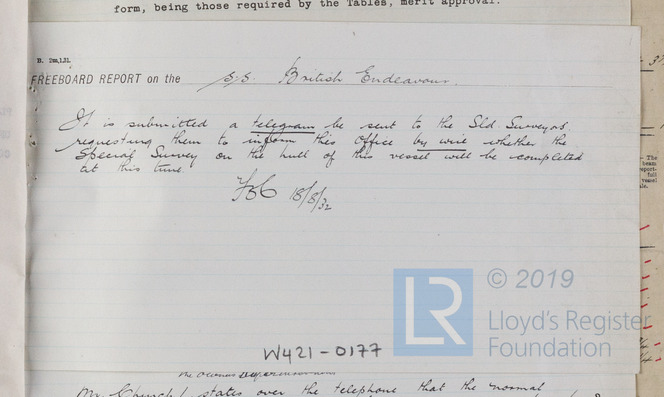 form, being those required by the Tables, merit approval.
FREEBOARD REPORT on the S.S. British Endeavour.
It is submitted a telegram be sent to the Sld. Surveyors
requesting them to inform this Office by wire whether the
Special Survey on the hull of this vessel will be completed
at this time.
18/8/32
LR
© 2019
Lloyd's Register
Foundation
W421-0177
The
beam
report-
full
vessel
Mr. Church states over the telephone that the normal